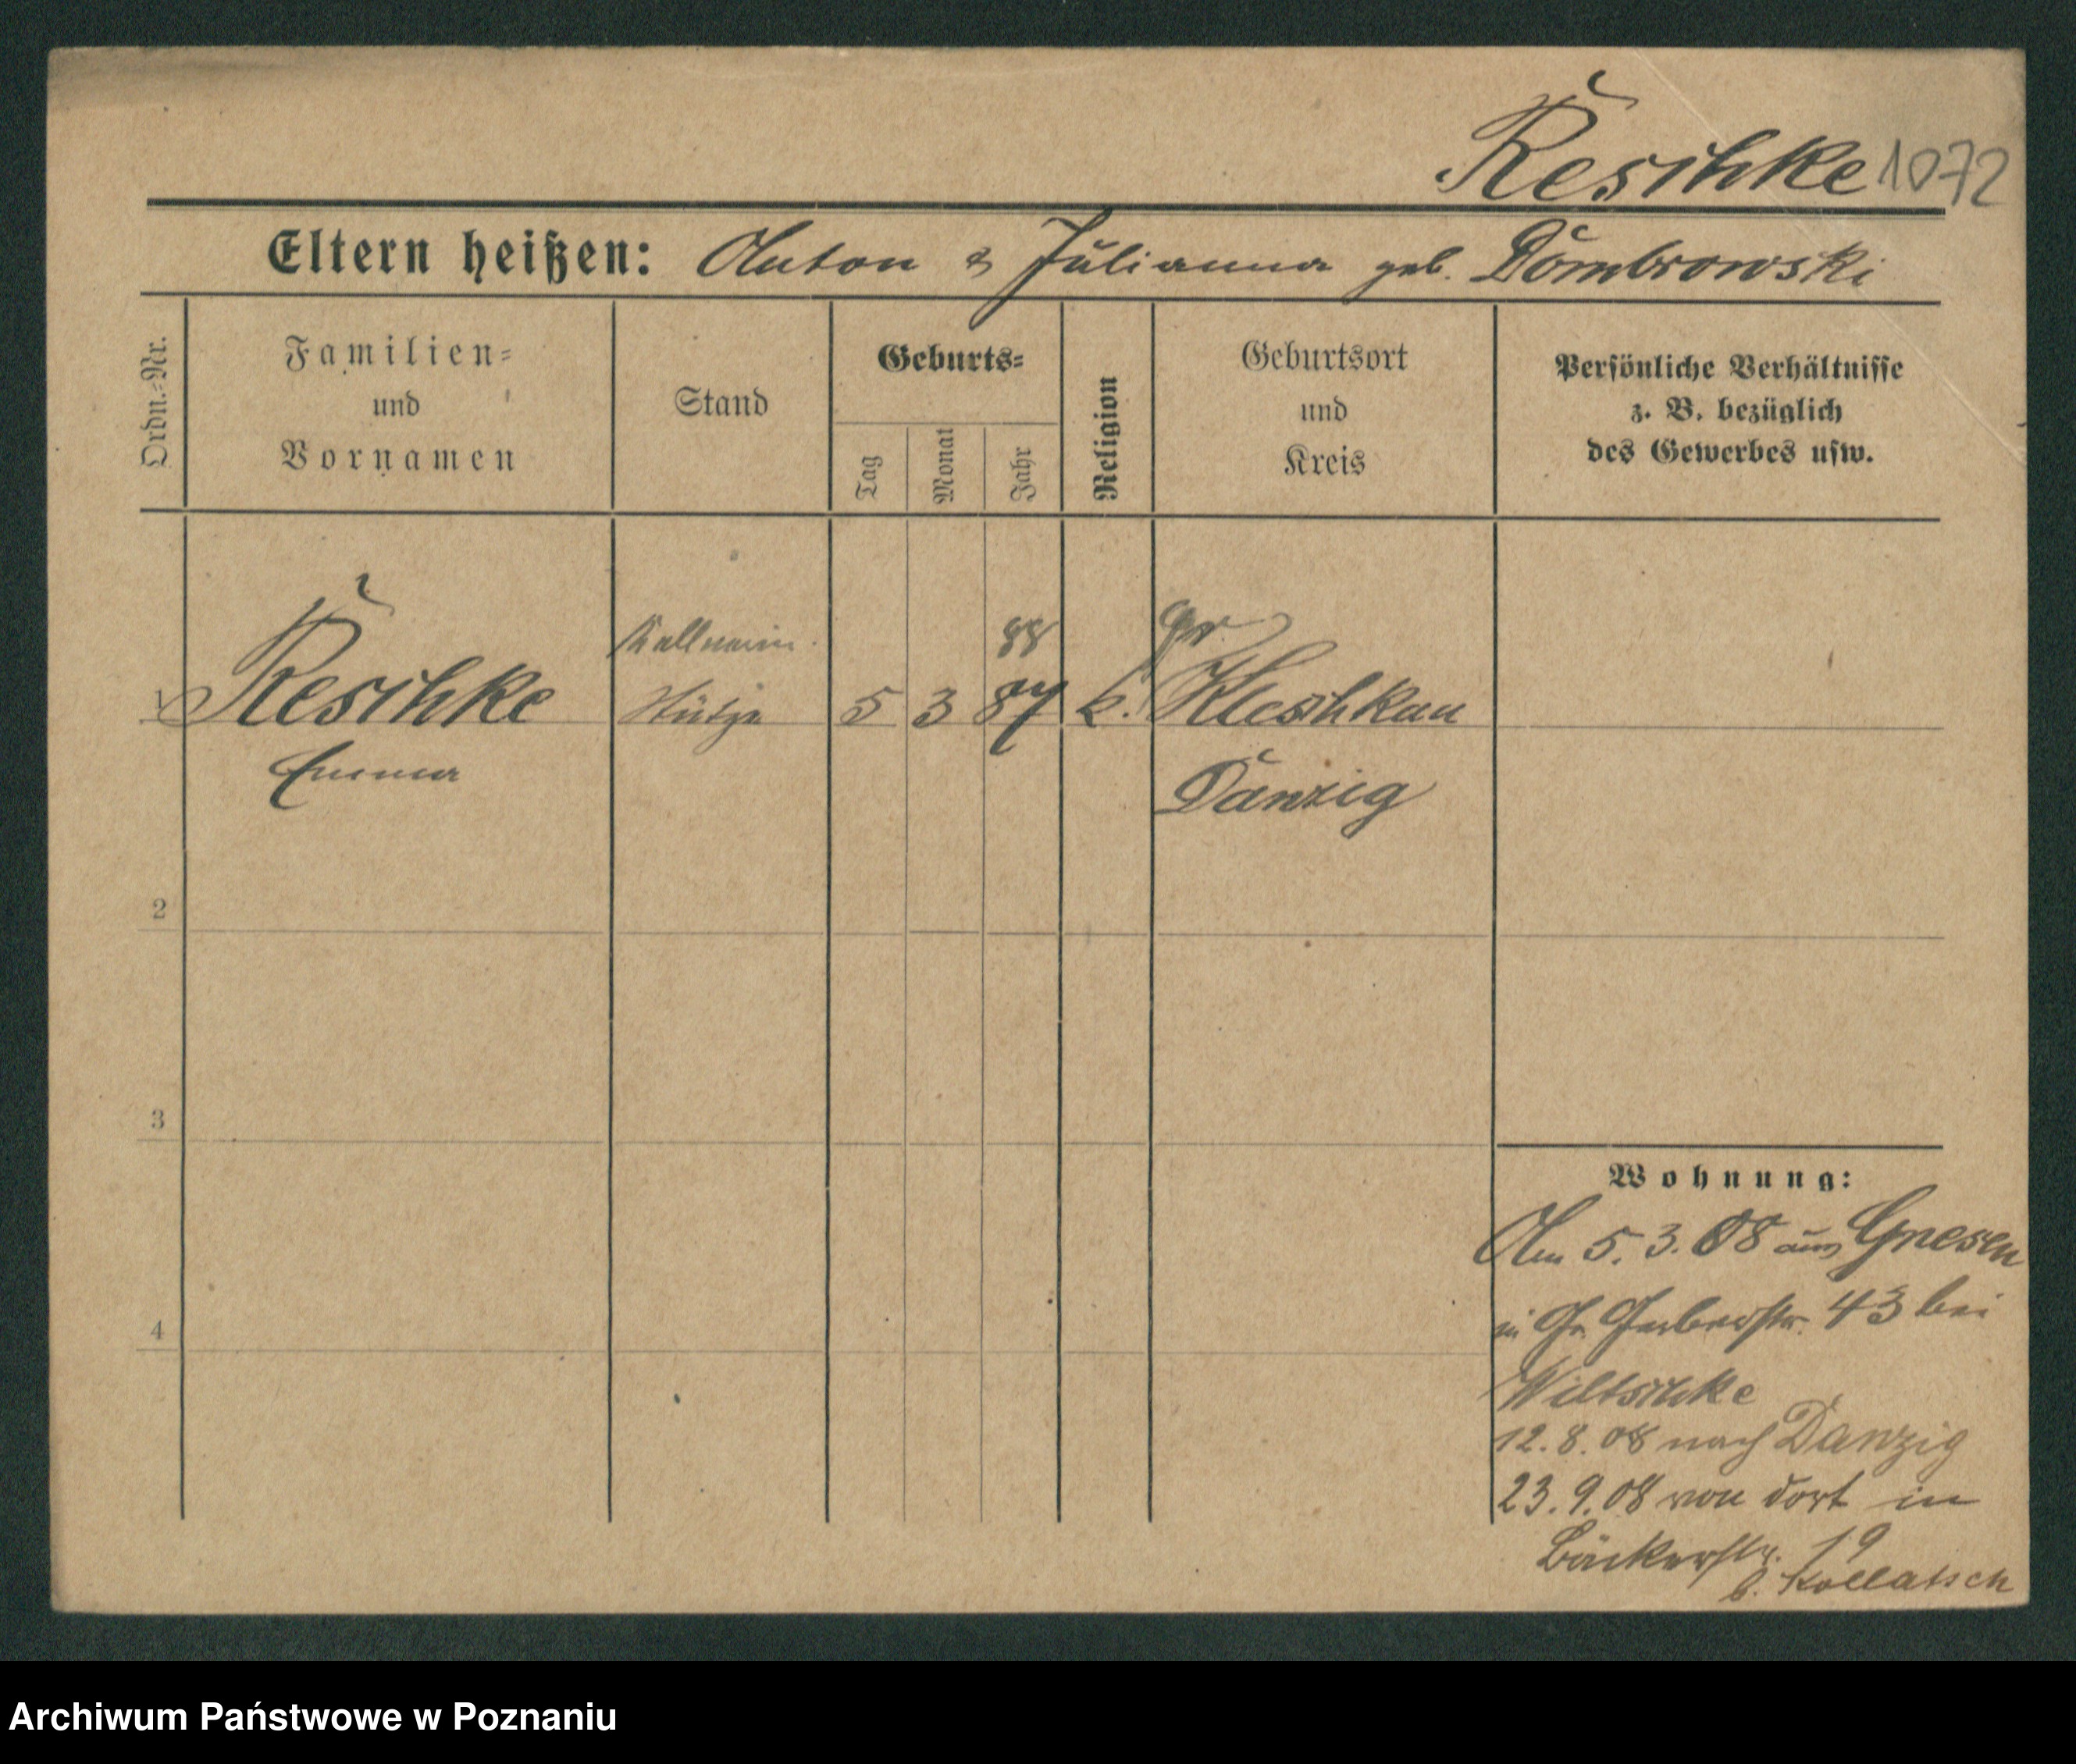 Reschke 1072
Eltern heißen: Anton & Julianna geb. Dombrowski
Ordn.-Nr.
Familien-
und
Vornamen
Stand
Geburts-
Tag
Monat
Jahr
Religion
Geburtsort
und
Kreis
Persönliche Verhältnisse
z. B. bezüglich
des Gewerbes usw.
Kellnerin
88
gr.
1 Reschke
Stütze
5 3 87 k. Kleschkau
Emma
Danzig
2
3
4
Wohnung:
Am 5. 3. 08 aus Gnesen
in Gr. Gerberstr. 43 bei
Wiltschke
12. 8. 08 nach Danzig
23. 9. 08 von dort in
Bäckerstr. 19
b. Kollatsch
Archiwum Państwowe w Poznaniu